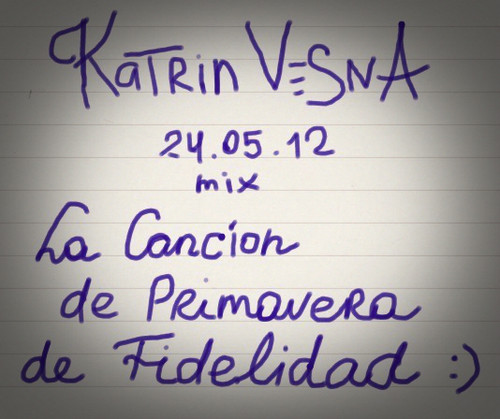 Katrin Vesna
24.05.12
mix
La Cancion
de Primavera
de Fidelidad :)